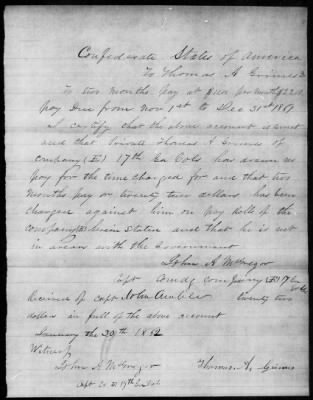 Confederate States of America
To Thomas A Grimes Dr
To two months pay at $11.00 per month $22.00
pay Due from Nov 1st to Dec 31st 1861
I certify that the above account is
and that Private Thomas A Grimes of
company (B) 17th Ga Vols has drawn no
pay for the time charged for and that two
months pay or twenty two dollars has been
charged against him on pay roll of the
company (B) herein stated and that he is not
in arears with the Government
John A McGregor
Capt Comdg company (B) 17 Ga
Vols
Received of capt John Ambler twenty two
dollars in full of the above account
January the 30th 1862
Witness
John A McGregor
Thomas A. Grimes
Capt Co B 17th Ga Vols